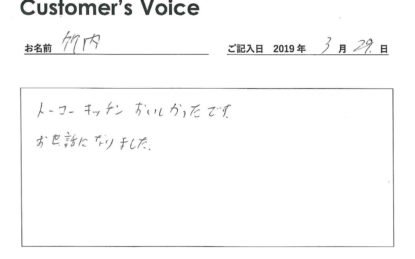 Customer's Voice
お名前 竹内 ご記入日 2019年 3月 29日
トーコーキッチン おいしかったです。
お世話になりました。